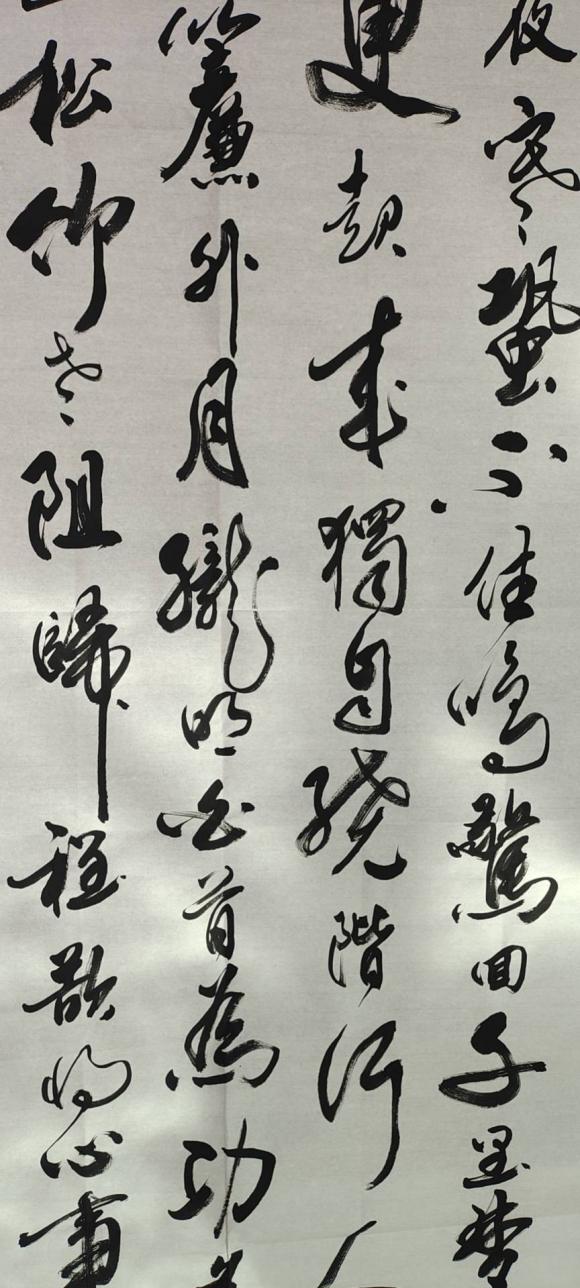 夜寒蛩不住鳴驚回千里夢
更起來獨自繞階行
簾外月朧明白首為功
松竹老阻歸程欲將心事